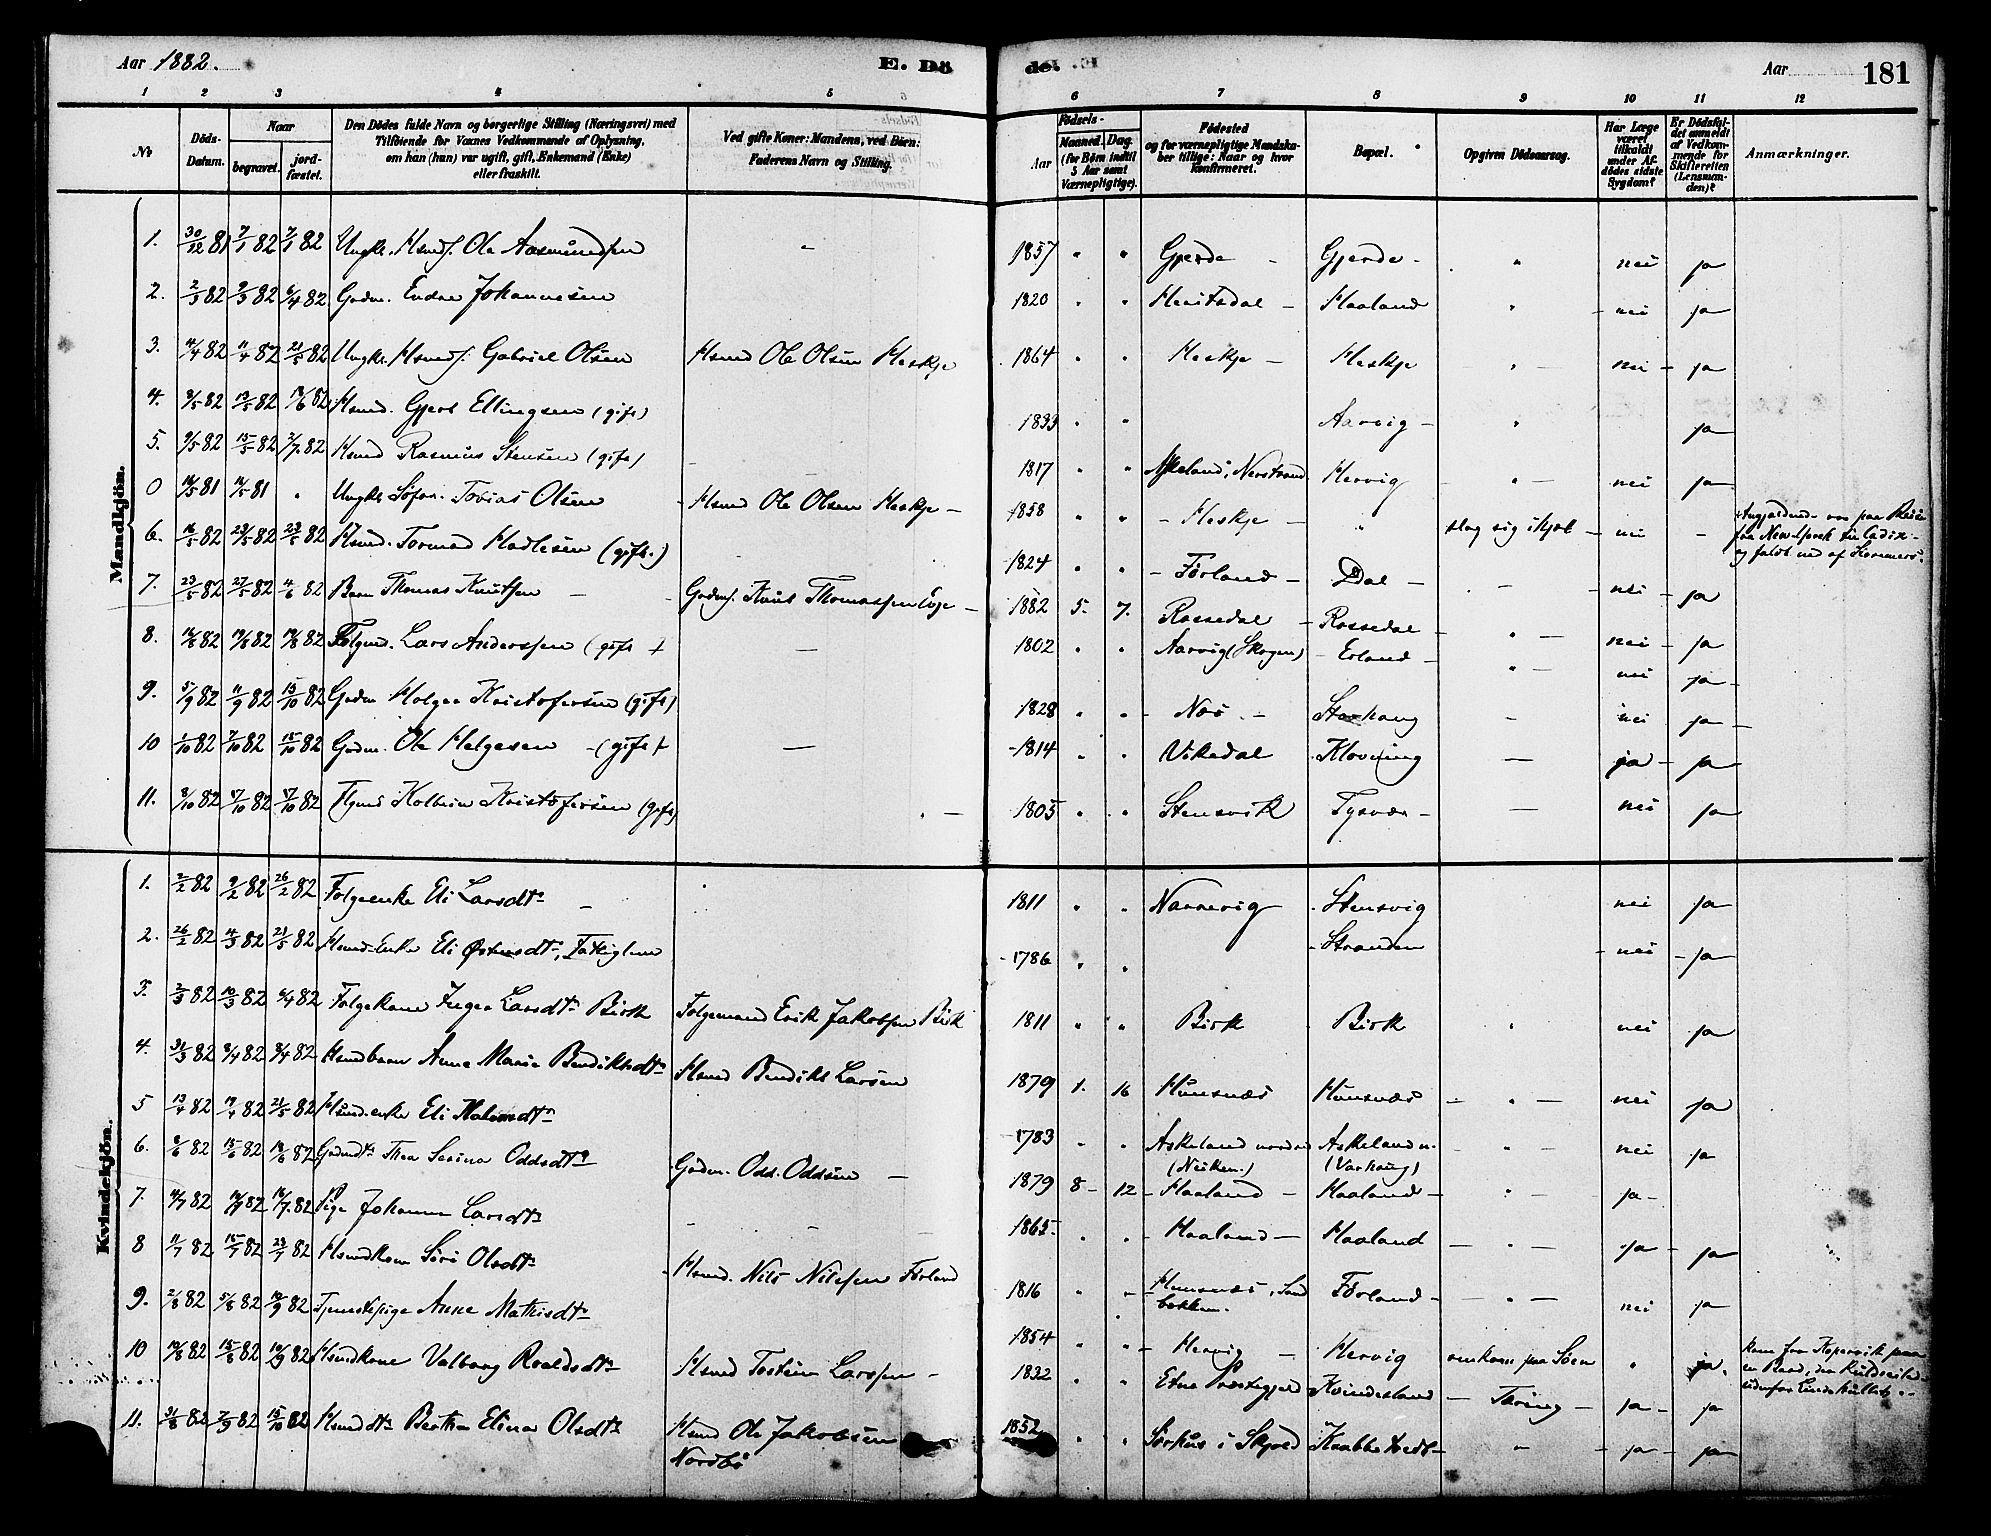 Aar 1882.
E. Dö
de.
Aar
181
1 2 3 4 5 6 7 8 9 10 11 12
No
Döds-Datum.
Naar
begravet.
jord-fæstet.
Den Dödes fulde Navn og borgerlige Stilling (Næringsvei) med
Tilföiende for Voxnes Vedkommende af Oplysning,
om han (hun) var ugift, gift, Enkemand (Enke)
eller fraskilt.
Ved gifte Koner: Mandens, ved Börn:
Faderens Navn og Stilling.
Födsels-
Aar
Maaned. Dag.
(for Börn indtil
5 Aar samt
Værnepligtige).
Födested
og for værnepligtige Mandska-
ber tillige: Naar og hvor
konfirmeret.
Bopæl.
Opgiven Dödsaarsag.
Har Læge
været
tilkaldt
under Af-
dödes sidste
Sygdom?
Er Dödsfal-
det anmeldt
af Vedkom-
mende for
Skifteretten
(Lensman-
den)?
Anmærkninger.
Mandkjön.
1. 30/12 81 7/1 82 7/1 82 Ungk. Hsmds. Ole Aasmundsen - 1857 " " Gjerde - Gjerde - " nei ja
2. 2/3 82 9/3 82 6/4 82 Gadm. Endre Johannesen 1820 " " Haaland " nei ja
3. 4/4 82 11/4 82 21/5 82 Ungk. Hsmds. Gabriel Olsen Hsmd Ole Olsen Heskje 1864 " " Heskje - Heskje " nei - ja
4. 8/5 82 13/5 82 82 Hsmd. Gjert Ellingsen (gift) 1833 " " Aarvig - " ja
5. 9/5 82 15/5 82 2/7 82 Hsmd Rasmus Stensen (gift) 1817 " " i Nerstrand Hervig " nei ja
0 81 81 " Ungk. Søfar. Tobias Olsen - Hsmd Ole Olsen Heskje - 1858 " " - Heskje - " slog sig ihjel - nei - var paa Reise
fra New-York til Cadix -
og faldt ned af
6. 16/5 82 23/5 82 23/5 82 Hsmd. Tormod Hadlesen (gift.) 1824 " " - Førland - Dal - - nei - ja
7. 23/5 82 27/5 82 4/6 82 Barn Thomas Knutsen - Gadmd. Knut Thomassen Eye - 1882 5. 7. Rossedal - Rossedal - " - nei - ja
8. 82 82 82 Følgmd. Lars Anderssen (gift) - 1802 " " Aarvig (Skogen) - Erland - " - nei ja -
9. 5/9 82 11/9 82 15/10 82 Gadm Holger Kristofersen (gift) 1828 " " - Nes - Storhaug - nei - ja -
10 1/10 82 7/10 82 15/10 82 Gadm. Ole Helgesen - (gift) - 1814 " " Vikedal Klovning - ja - ja
11. 8/10 82 17/10 82 17/10 82 Kolbein Kristofersen (gift) " - 1805 " " Stensvik Tysvær - - nei ja
Kvindekjön.
1. 2/2 82 9/2 82 26/2 82 Følgeenke Eli Larsdtr - 1811 " " Narrevig Stensvig nei ja
2. 26/2 82 4/3 82 21/5 82 Hsmd-Enke Eli Østensdtr, Fattiglem 1786 " " - Stranden - nei - ja
3. 2/3 82 10/3 82 82 Følgekone Inger Larsdtr Birk Følgemand Erik Jakobsen Birk 1811 " " Birk Birk " nei ja
4. 31/3 82 8/4 82 8/4 82 Hsmdbarn Anne Marie Bendiktsdtr Hsmd Bendikt Larsen 1879 1. 16 Hunsnæs Hunsnæs - " - nei ja
5 13/4 82 17/4 82 21/5 82 Hsmd.enke Eli 1783 " " Askeland nordre Askeland n. - " - nei ja
(Neiken.) (Varhaug)
6. 8/6 82 15/6 82 18/6 82 Gadmdtr Thea Serina Oddsdtr Gadm. Odd Oddsen - 1879 8 - 12 - Haaland - Haaland - " - ja -
7. 82 82 82 Pige Johanne Larsdtr 1865 " " - Haaland - Haaland - " - ja - ja
8 11/7 82 15/7 82 23/7 82 Hsmdkone Siri Olsdtr Hsmd. Nils Nilssen Førland 1816 " " Hunsnæs, Sand Førland - - " - nei ja
bekken.
9. 2/8 82 5/8 82 10/9 82 Tjenestepige Anne Mathisdtr 1854 " " - Hervig - Hervig omkom paa Søen " ja. kom fra Kopervik paa
en Baad,
10 82 15/8 82 10/9 82 Hsmdkone Valborg Roaldsdtr Hsmd Tostein Larssen - 1832 " " Etne Præstegjeld Kvindesland - Tæring - ja - ja
11. 31/8 82 7/9 82 15/10 82 Hsmddtr Berthe Elina Olsdtr Hsmd Ole Jakobsen 1852 " " Sørhus i Skjold - " - ja - ja
Nordbø